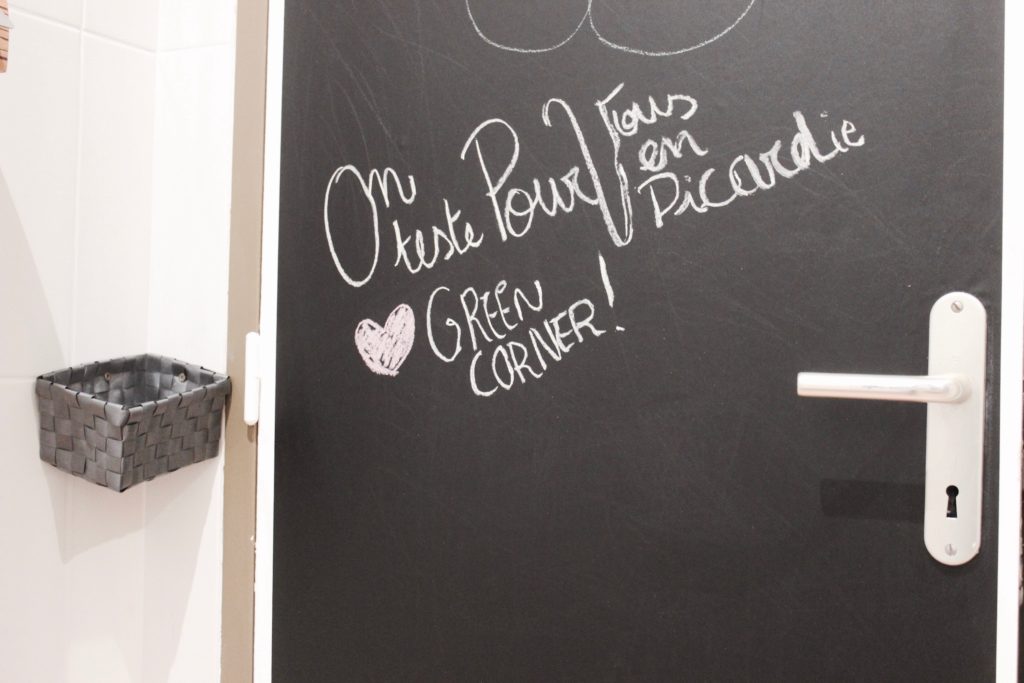 On teste Pour Vous en Picardie
GREEN
CORNER!